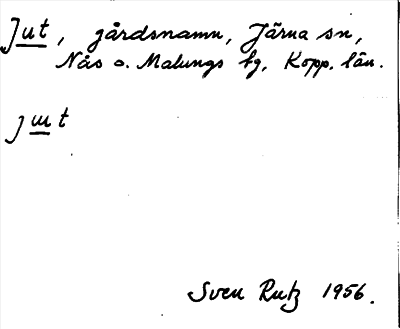 Jut, gårdsnamn, Järna sn,
Nås o. Malungs tg, Kopp. län.
jut
Sven Rutz 1956.